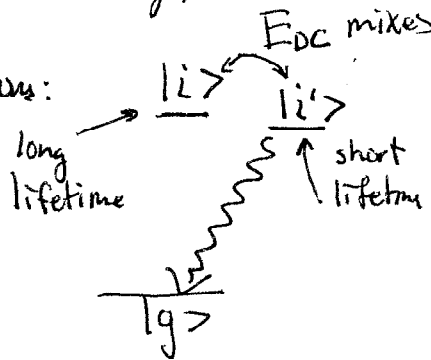 E_DC mixes
ons:
|i>
|i'>
long
lifetime
short
lifetm
|g>